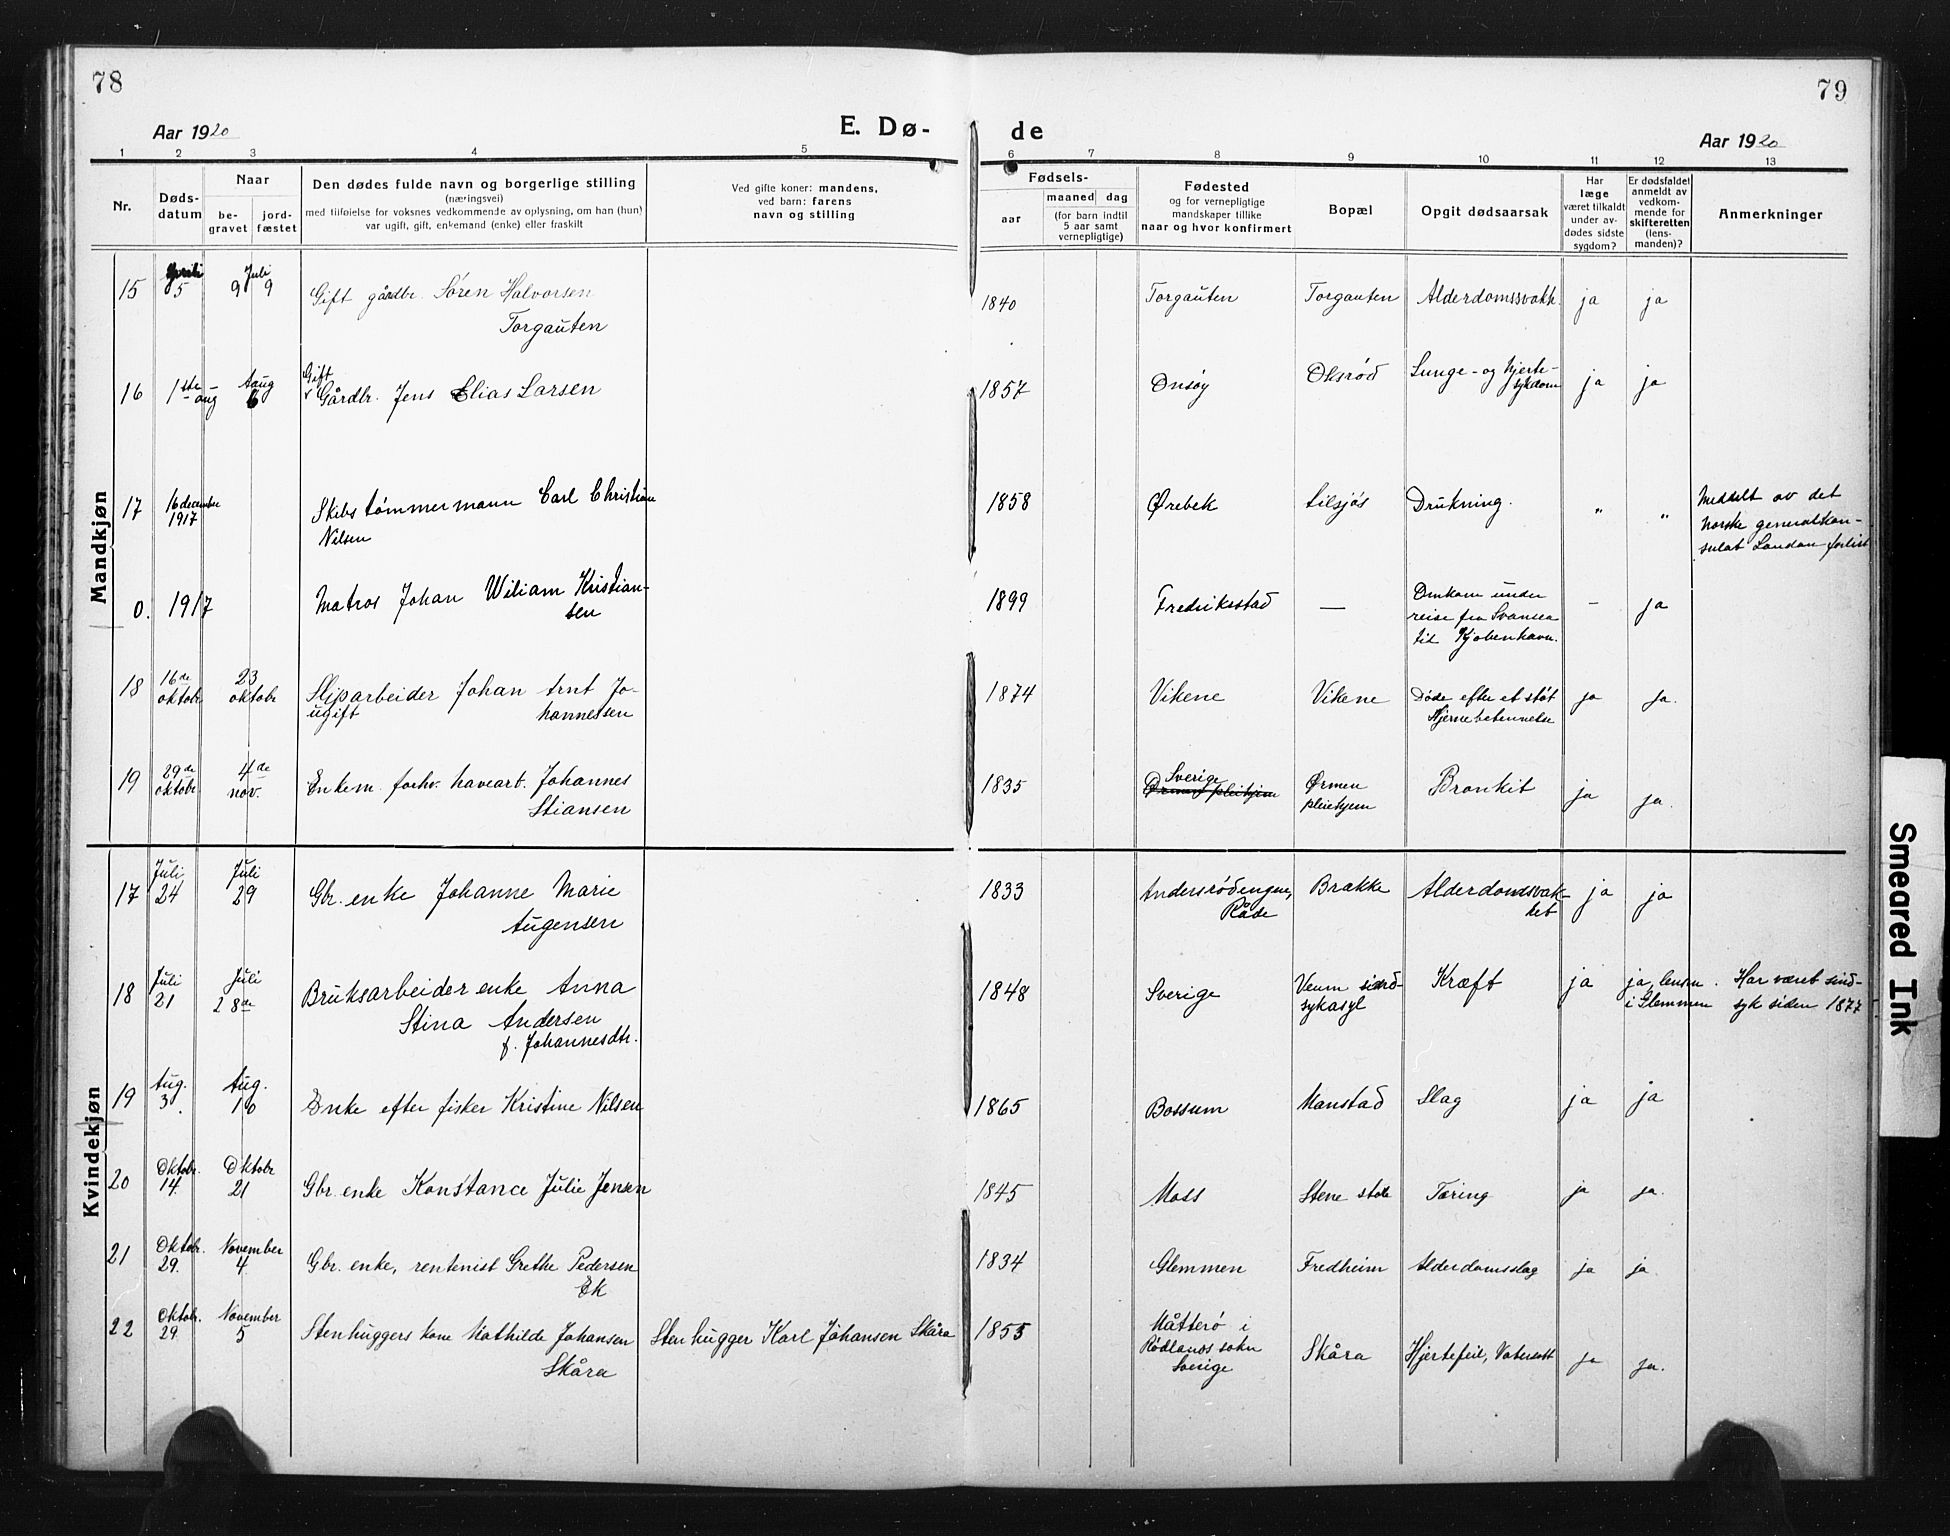 78
79
Aar 1920
E. Dø-
de
Aar 1920
1 2 3 4 5 6 7 8 9 10 11 12 13
Nr.
Døds-
datum
Naar
be-
gravet
jord-
fæstet
Den dødes fulde navn og borgerlige stilling
(næringsvei)
med tilføielse for voksnes vedkommende av oplysning, om han (hun)
var ugift, gift, enkemand (enke) eller fraskilt
Ved gifte koner: mandens,
ved barn: farens
navn og stilling
Fødsels-
aar
maaned dag
(for barn indtil
5 aar samt
vernepligtige)
Fødested
og for vernepligtige
mandskaper tillike
naar og hvor konfirmert
Bopæl
Opgit dødsaarsak
Har
læge
været tilkaldt
under av-
dødes sidste
sygdom?
Er dødsfaldet
anmeldt av
vedkom-
mende for
skifteretten
(lens-
manden)?
Anmerkninger
Mandkjøn
15 5 9 Juli 9 Gift gårdbr. Sören Halvorsen
Torgauten
1840 Torgauten Torgauten Alderdomssvakh. ja ja
16 1ste aug aug 6 Gift
Gårdbr. Jens Elias Larsen
1857 Onsøy Oksrød Lunge- og hjerte-
sykdom ja ja
17 16 december
1917 Skibstömmermann Carl Christian
Nilsen
1858 Ørebek Lilsjøs Drukning. " " Meddelt av det
norske generalkon-
sulat London forlist
0. 1917 Matros Johan Wiliam Kristian-
sen
1899 Fredriksstad — Omkom under
reise fra Svansea
til Kjøbenhavn. - ja
18 16de
oktobr 23
oktobr Slipsarbeider Johan Arnt Jo-
ugift hannessen
1874 Vikene Vikene Døde efter et støt
Hjernebetennelse ja ja.
19 29de
oktobr 4de
nov. Enkem. forhv. havearb. Johannes
Stiansen
1835 Sverige
Ørmen pleiehjem Ørmen
pleiehjem Bronkit ja ja.
Kvindekjøn
17 Juli
24 Juli
29 Gbr. enke Johanne Marie
Augensen
1833 Andersrødengene,
Råde Brække Alderdomsvak-
het ja ja
18 Juli
21 Juli
28de Bruksarbeider enke Anna
Stina Andersen
f. Johannesdtr.
1848 Sverige Veum sind-
sykasyl Kræft ja ja, lensm.
i Glemmen Har været sind-
syk siden 1877
19 Aug.
3. Aug.
10 Enke efter fisker Kristine Nilsen
1865 Bossum Manstad Slag ja ja
20 Oktobr.
14. Oktobr
21 Gbr. enke Konstance Julie Jensen
1845 Moss Stene stole Tæring ja ja.
21 Oktobr.
29. November
4. Gbr. enke, rentenist Grethe Pedersen
Ek
1834 Glemmen Fredheim Alderdomsslag ja ja.
22 Oktobr.
29. November
5 Stenhuggers kone Mathilde Johansen
Skåra
Stenhugger Karl Johansen Skåra
1855 Måtterø i
Rødlands sokn
Sverige Skåra Hjertefeil, Vatersott ja ja.
Smeared Ink